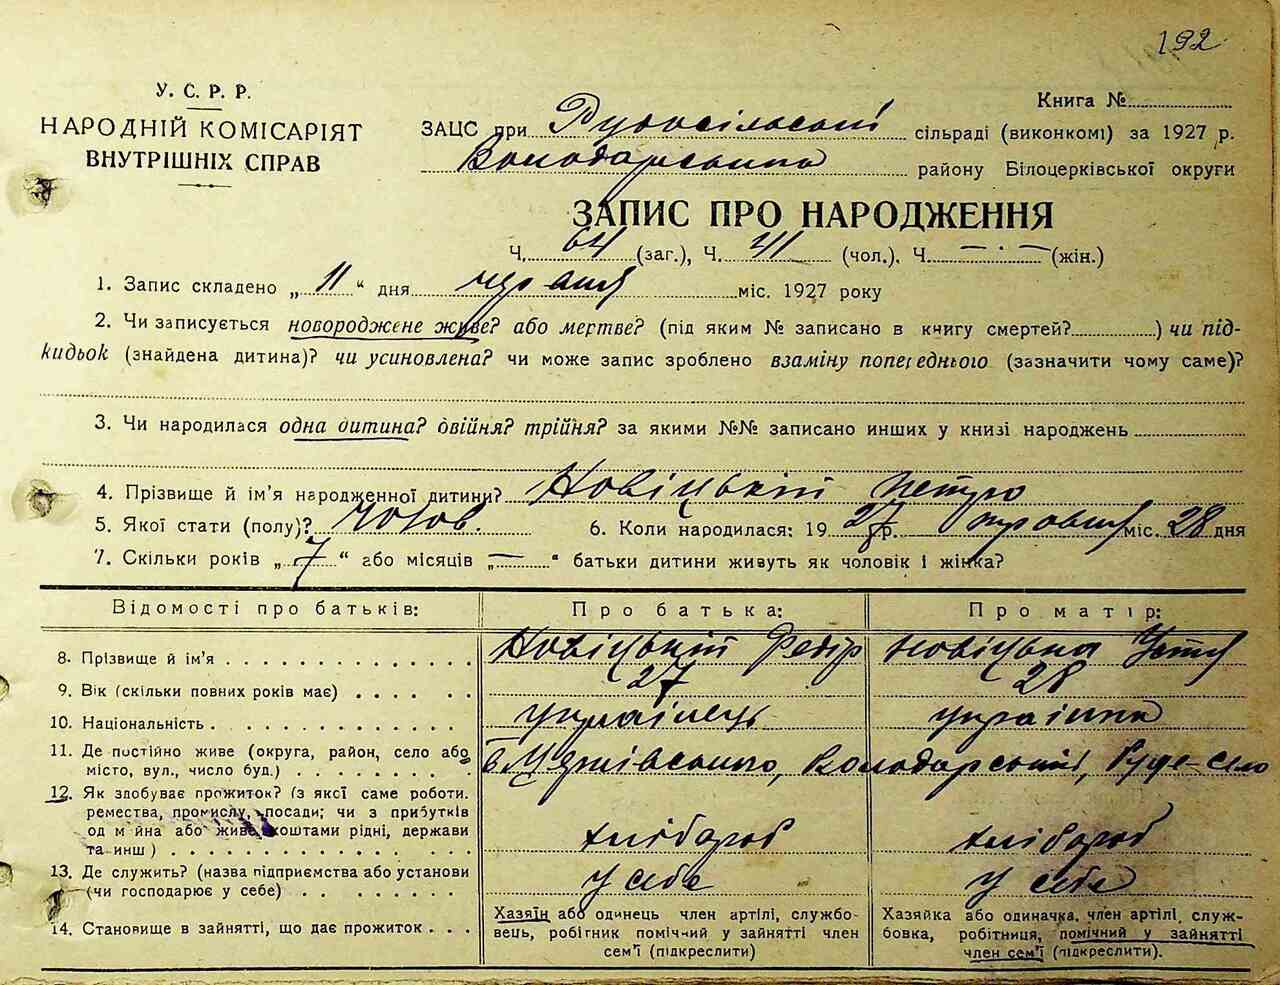 192
У. С. Р. Р.
НАРОДНІЙ КОМІСАРІЯТ
ВНУТРІШНІХ СПРАВ
Книга №
ЗАЦС при Рудосільській сільраді (виконкомі) за 1927 р.
Володарського району Білоцерківської округи
ЗАПИС ПРО НАРОДЖЕННЯ
Ч. 64 (заг.), Ч. 41 (чол.), Ч. — (жін.)
1. Запис складено „ 11 “ дня червня міс. 1927 року
2. Чи записується новороджене живе? або мертве? (під яким № записано в книгу смертей? ) чи під-
кидьок (знайдена дитина)? чи усиновлена? чи може запис зроблено взаміну попереднього (зазначити чому саме)?
3. Чи народилася одна дитина? двійня? трійня? за якими №№ записано инших у книзі народжень
4. Прізвище й ім’я народженної дитини? Новіцький Петро
5. Якої стати (полу)? чолов. 6. Коли народилася: 1927 р. травня міс. 28 дня
7. Скільки років „ 7 “ або місяців „ — “ батьки дитини живуть як чоловік і жінка?
Відомості про батьків: Про батька: Про матір:
8. Прізвище й ім’я Новіцький Федір Новіцька
9. Вік (скільки повних років має) 27 28
10. Національність українець українка
11. Де постійно живе (округа, район, село або
місто, вул., число буд.) Володарський, Руде-село
12. Як здобуває прожиток? (з якої саме роботи.
ремества, промислу, посади; чи з прибутків
од майна або живе коштами рідні, держави
та инш) хлібороб хлібороб
13. Де служить? (назва підприємства або установи
(чи господарює у себе) у себе у себе
14. Становище в зайнятті, що дає прожиток
Хазяїн або одинець член артілі, службо-
вець, робігник помічний у зайнятті член
сем’ї (підкреслити)
Хазяйка або одиначка, член артілі, служ-
бовка, робітниця, помічний у зайнятті
член сем’ї (підкреслити).